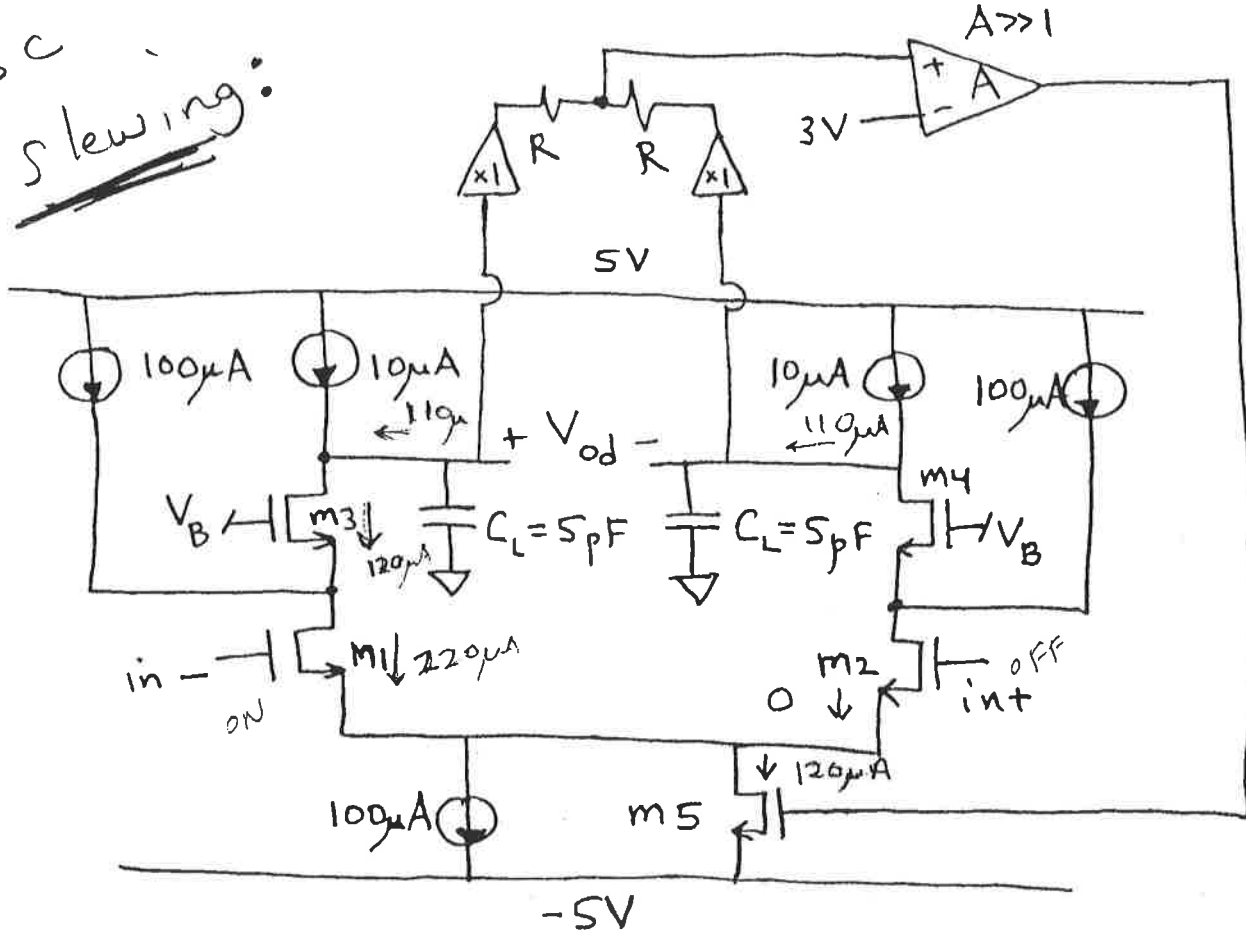 C
slewing:
A>>1
+
A
-
3V
R
R
×1
×1
5V
100μA
10μA
10μA
100μA
110μ
+ Vod -
110μA
m4
VB
m3
120μA
CL=5pF
CL=5pF
VB
in -
m1
220μA
m2
OFF
in+
ON
0
120μA
100μA
m5
-5V